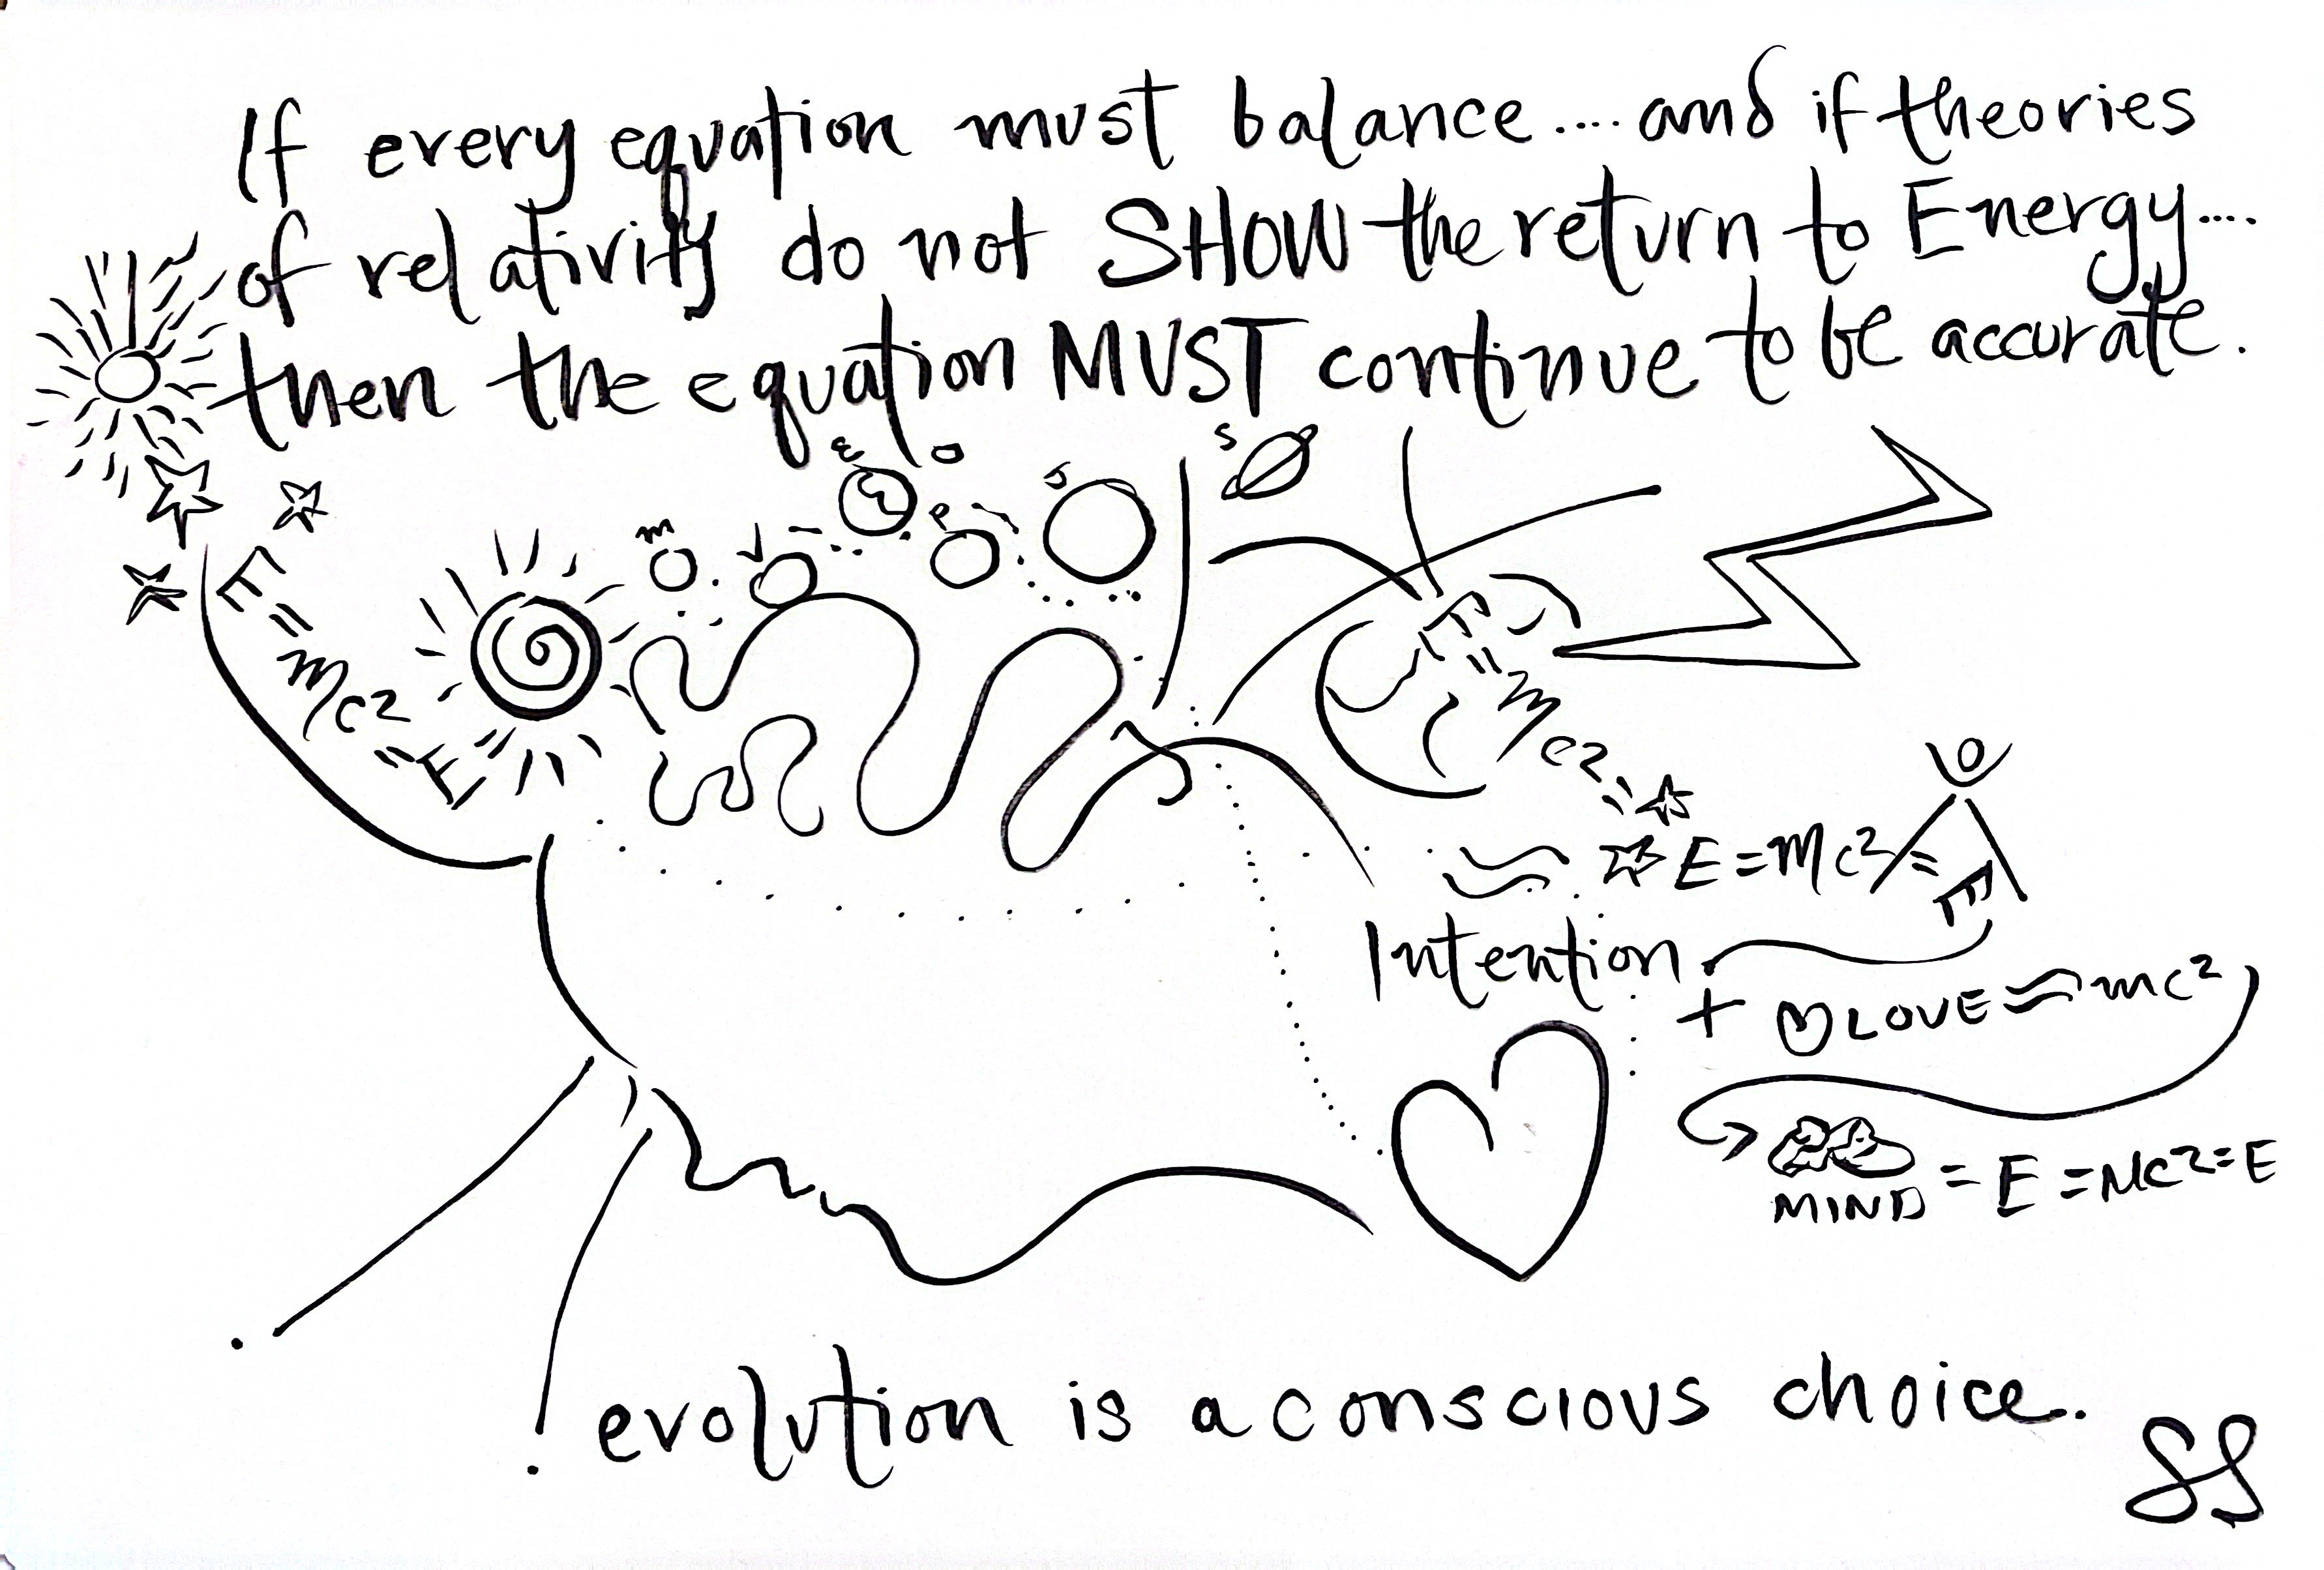 If every equation must balance.... and if theories
of relativity do not SHOW the return to Energy....
then the equation MUST continue to be accurate.
m v E P S S
E = mc2 = E
= mc2
E = mc2 = E
Intention
+ LOVE ≈ mc2
MIND = E = MC2 = E
evolution is a conscious choice.
SS